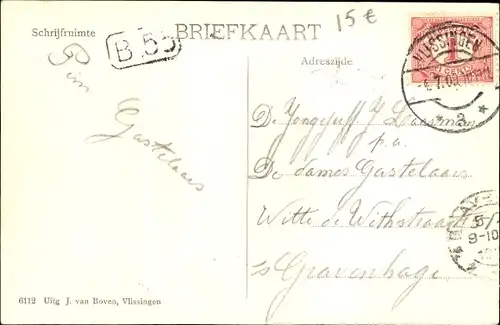 15 €
Schrijfruimte
BRIEFKAART
B.55
Adreszijde
VLISSINGEN
Pim
Gastelaars
De Jongejuff.
p.a.
De dames Gastelaars
Witte de Withstraat
's Gravenhage
6112 Uitg J. van Boven, Vlissingen